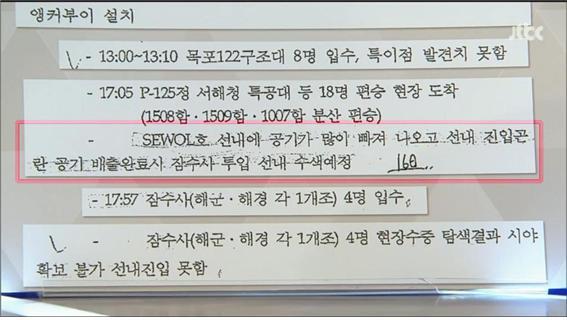 앵커부이 설치
jtbc
- 13:00~13:10 목포122구조대 8명 입수, 특이점 발견치 못함
- 17:05 P-125정 서해청 특공대 등 18명 편승 현장 도착
(1508함·1509함·1007함 분산 편승)
- SEWOL호 선내에 공기가 많이 빠져 나오고 선내 진입곤
란 공기 배출완료시 잠수사 투입 선내 수색예정
- 17:57 잠수사(해군·해경 각 1개조) 4명 입수
- 잠수사(해군·해경 각 1개조) 4명 현장수중 탐색결과 시야
확보 불가 선내진입 못함